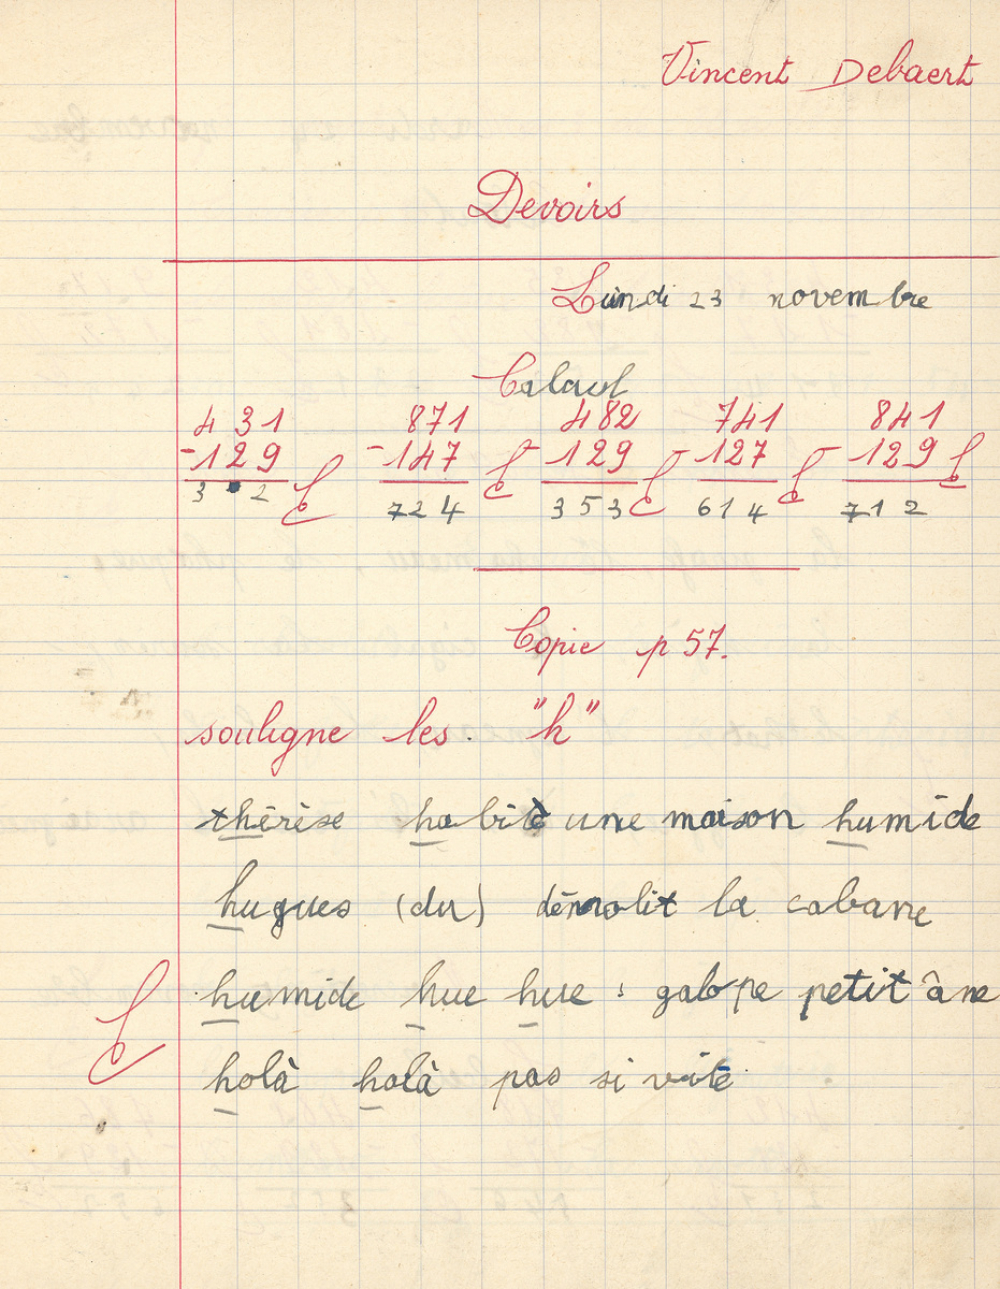 Vincent Debaert
Devoirs
Lundi 23 novembre
Calcul
431 871 482 741 841
-129 -147 -129 -127 -129
3•2 724 353 614 712
Copie p 57.
souligne les "h"
thérèse habite une maison humide
hugues (du) démolit la cabane
humide hue hue : galope petit âne
holà holà pas si vite